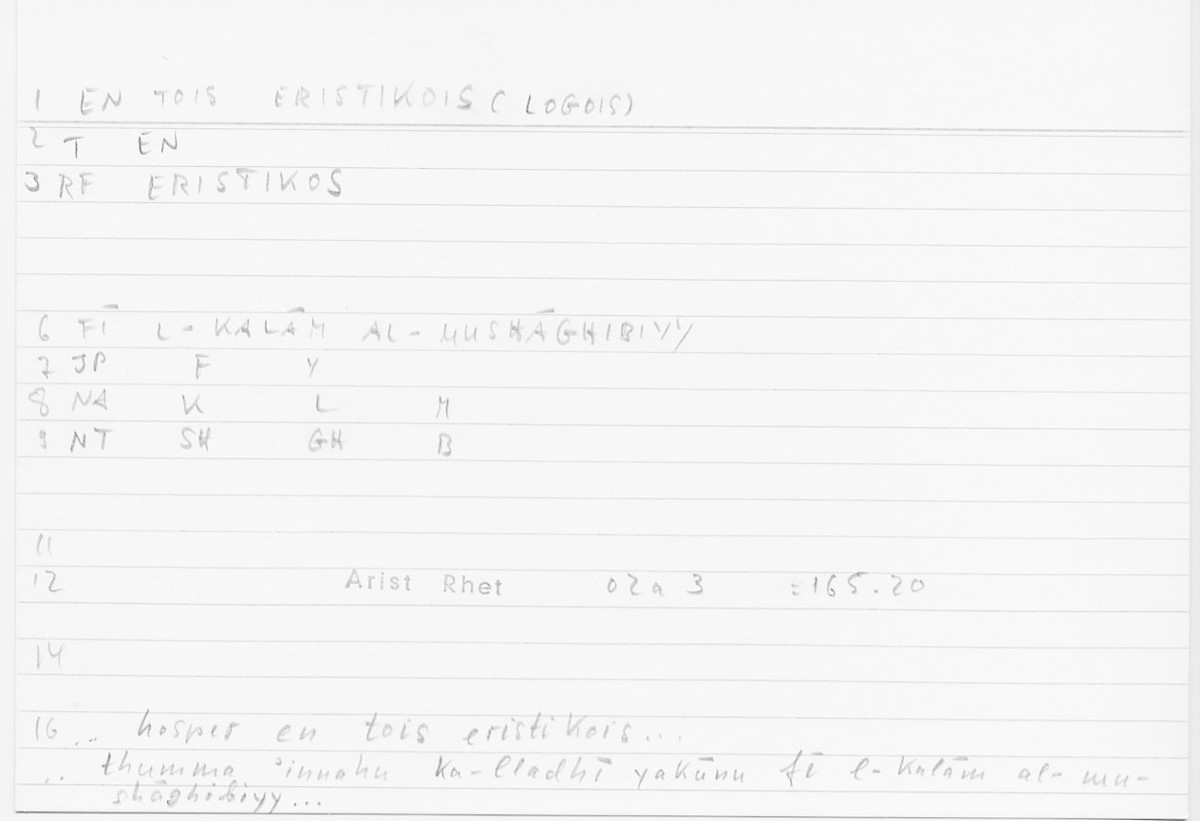 1 EN TOIS ERISTIKOIS (LOGOIS)
2 T EN
3 RF ERISTIKOS
6 FĪ L-KALĀM AL-MUSHĀGHIBIYY
7 JP F Y
8 NA K L M
9 NT SH GH B
11
12 Arist Rhet 02a 3 =165.20
14
16 .. hosper en tois eristikois...
.. thumma 'innahu ka-lladhī yakūnu fī l-kalām al-mu-
shāghibiyy...